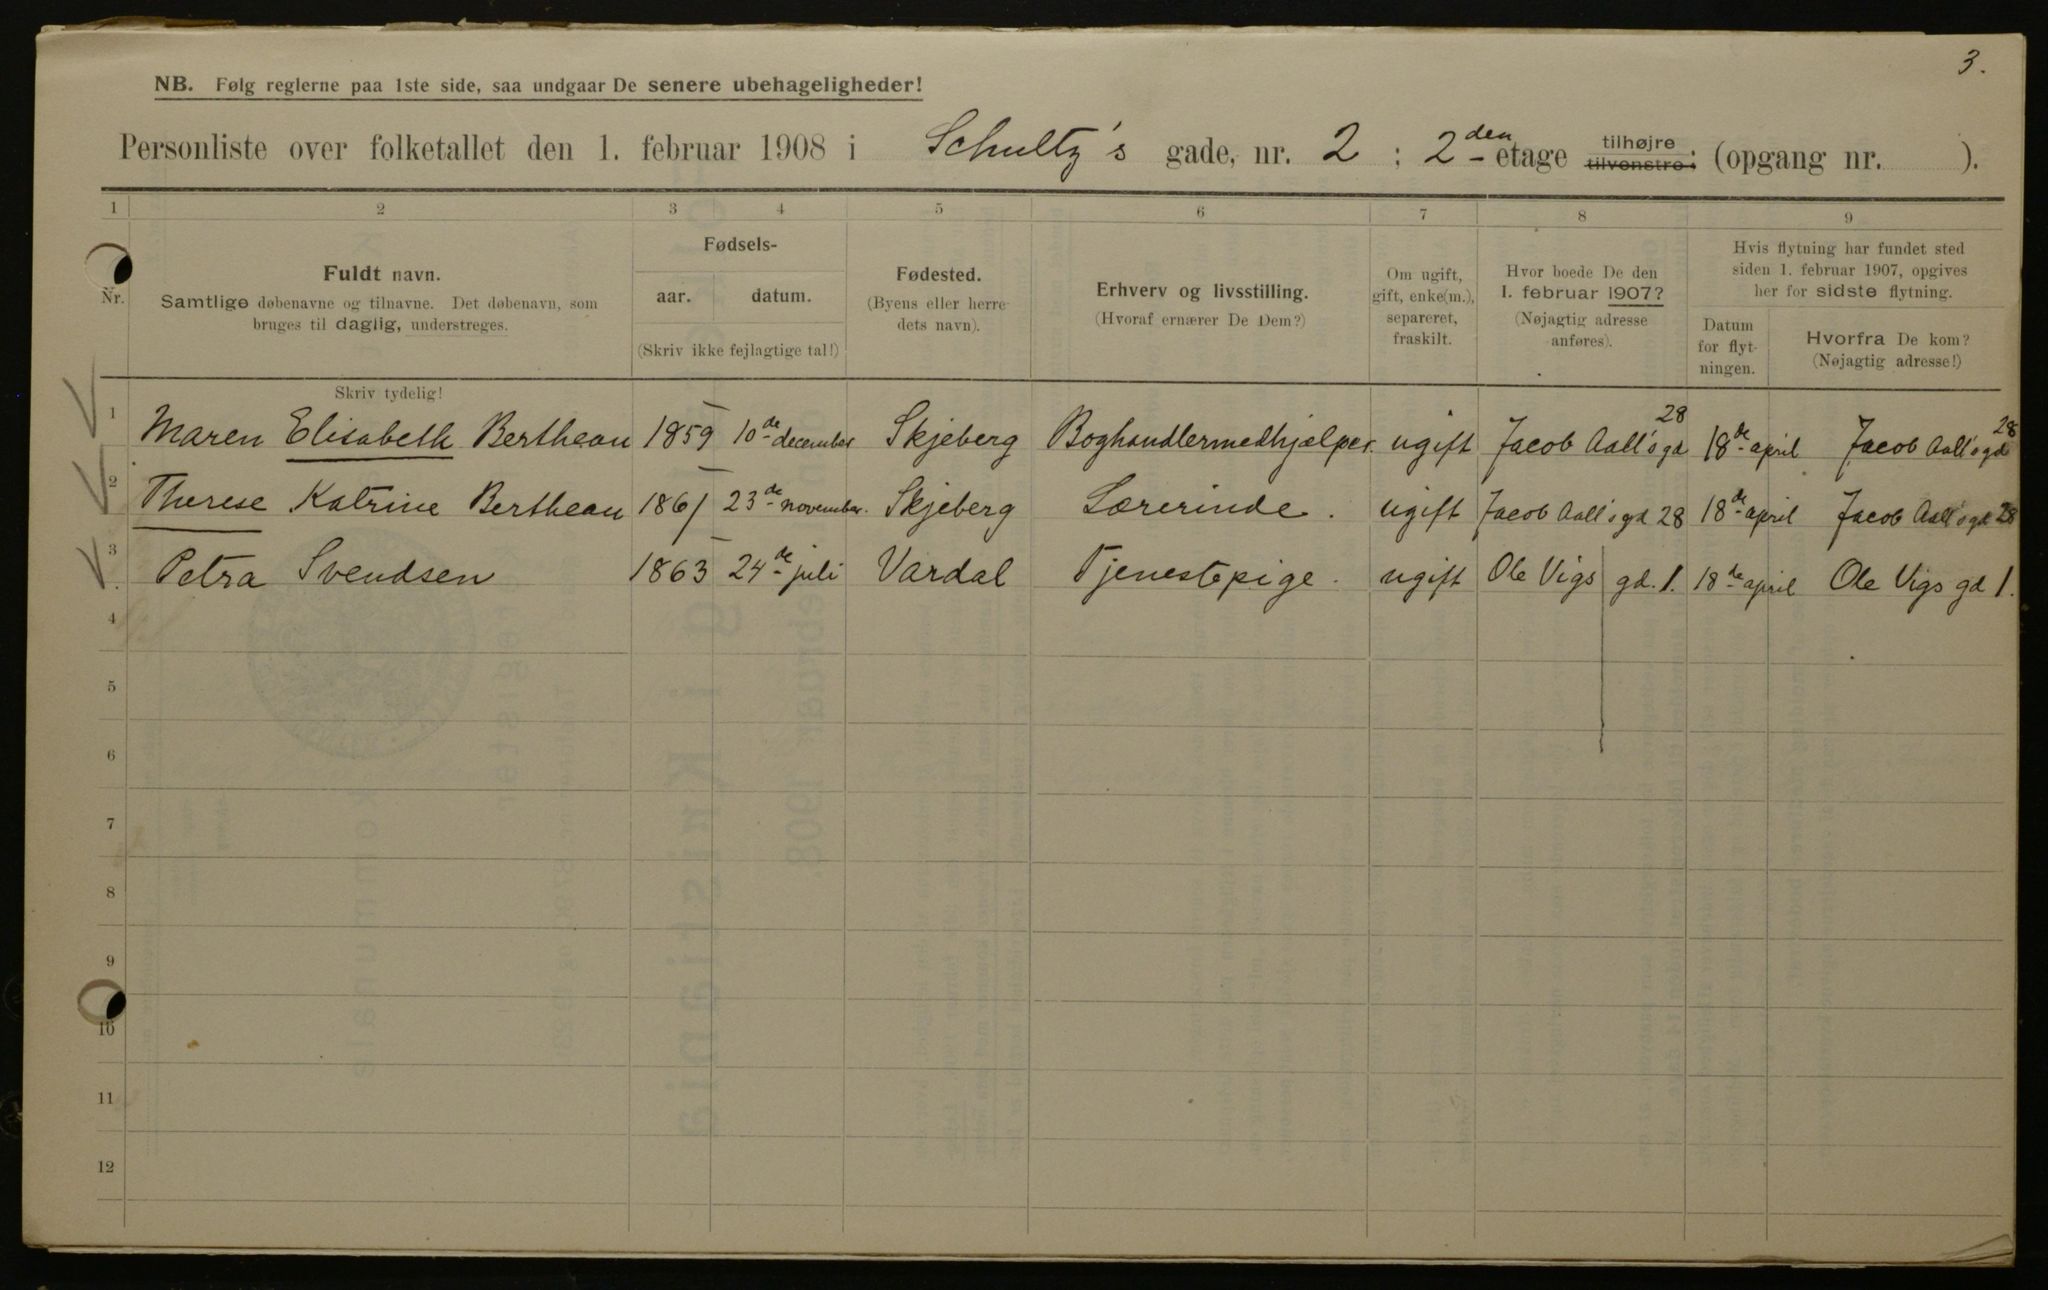 3.
NB. Følg reglerne paa 1ste side, saa undgaar De senere ubehageligheder!
Personliste over folketallet den 1. februar 1908 i Schultz's gade, nr. 2 ; 2den etage tilhøjre tilvenstre; (opgang nr. ).
1 2 3 4 5 6 7 8 9
Nr.
Fuldt navn.
Samtlige døbenavne og tilnavne. Det døbenavn, som
bruges til daglig, understreges.
Fødsels-
aar. datum.
(Skriv ikke fejlagtige tal!)
Fødested.
(Byens eller herre-
dets navn).
Erhverv og livsstilling.
(Hvoraf ernærer De Dem?)
Om ugift,
gift, enke(m.),
separeret,
fraskilt.
Hvor boede De den
1. februar 1907?
(Nøjagtig adresse
anføres).
Hvis flytning har fundet sted
siden 1. februar 1907, opgives
her for sidste flytning.
Datum
for flyt-
ningen.
Hvorfra De kom?
(Nøjagtig adresse!)
Skriv tydelig!
1 Maren Elisabeth Bertheau 1859 10de december Skjeberg Boghandlermedhjælper. ugift Jacob Aall's gd 28 18de april Jacob Aall's gd 28
2 Therese Katrine Bertheau 1861 23de november. Skjeberg Lærerinde. ugift Jacob Aall's gd 28 18de april Jacob Aall's gd 28
3 Petra Svendsen 1863 24de juli Vardal Tjenestepige. ugift Ole Vigs gd. 1. 18de april Ole Vigs gd 1.
4
5
6
7
8
9
10
11
12